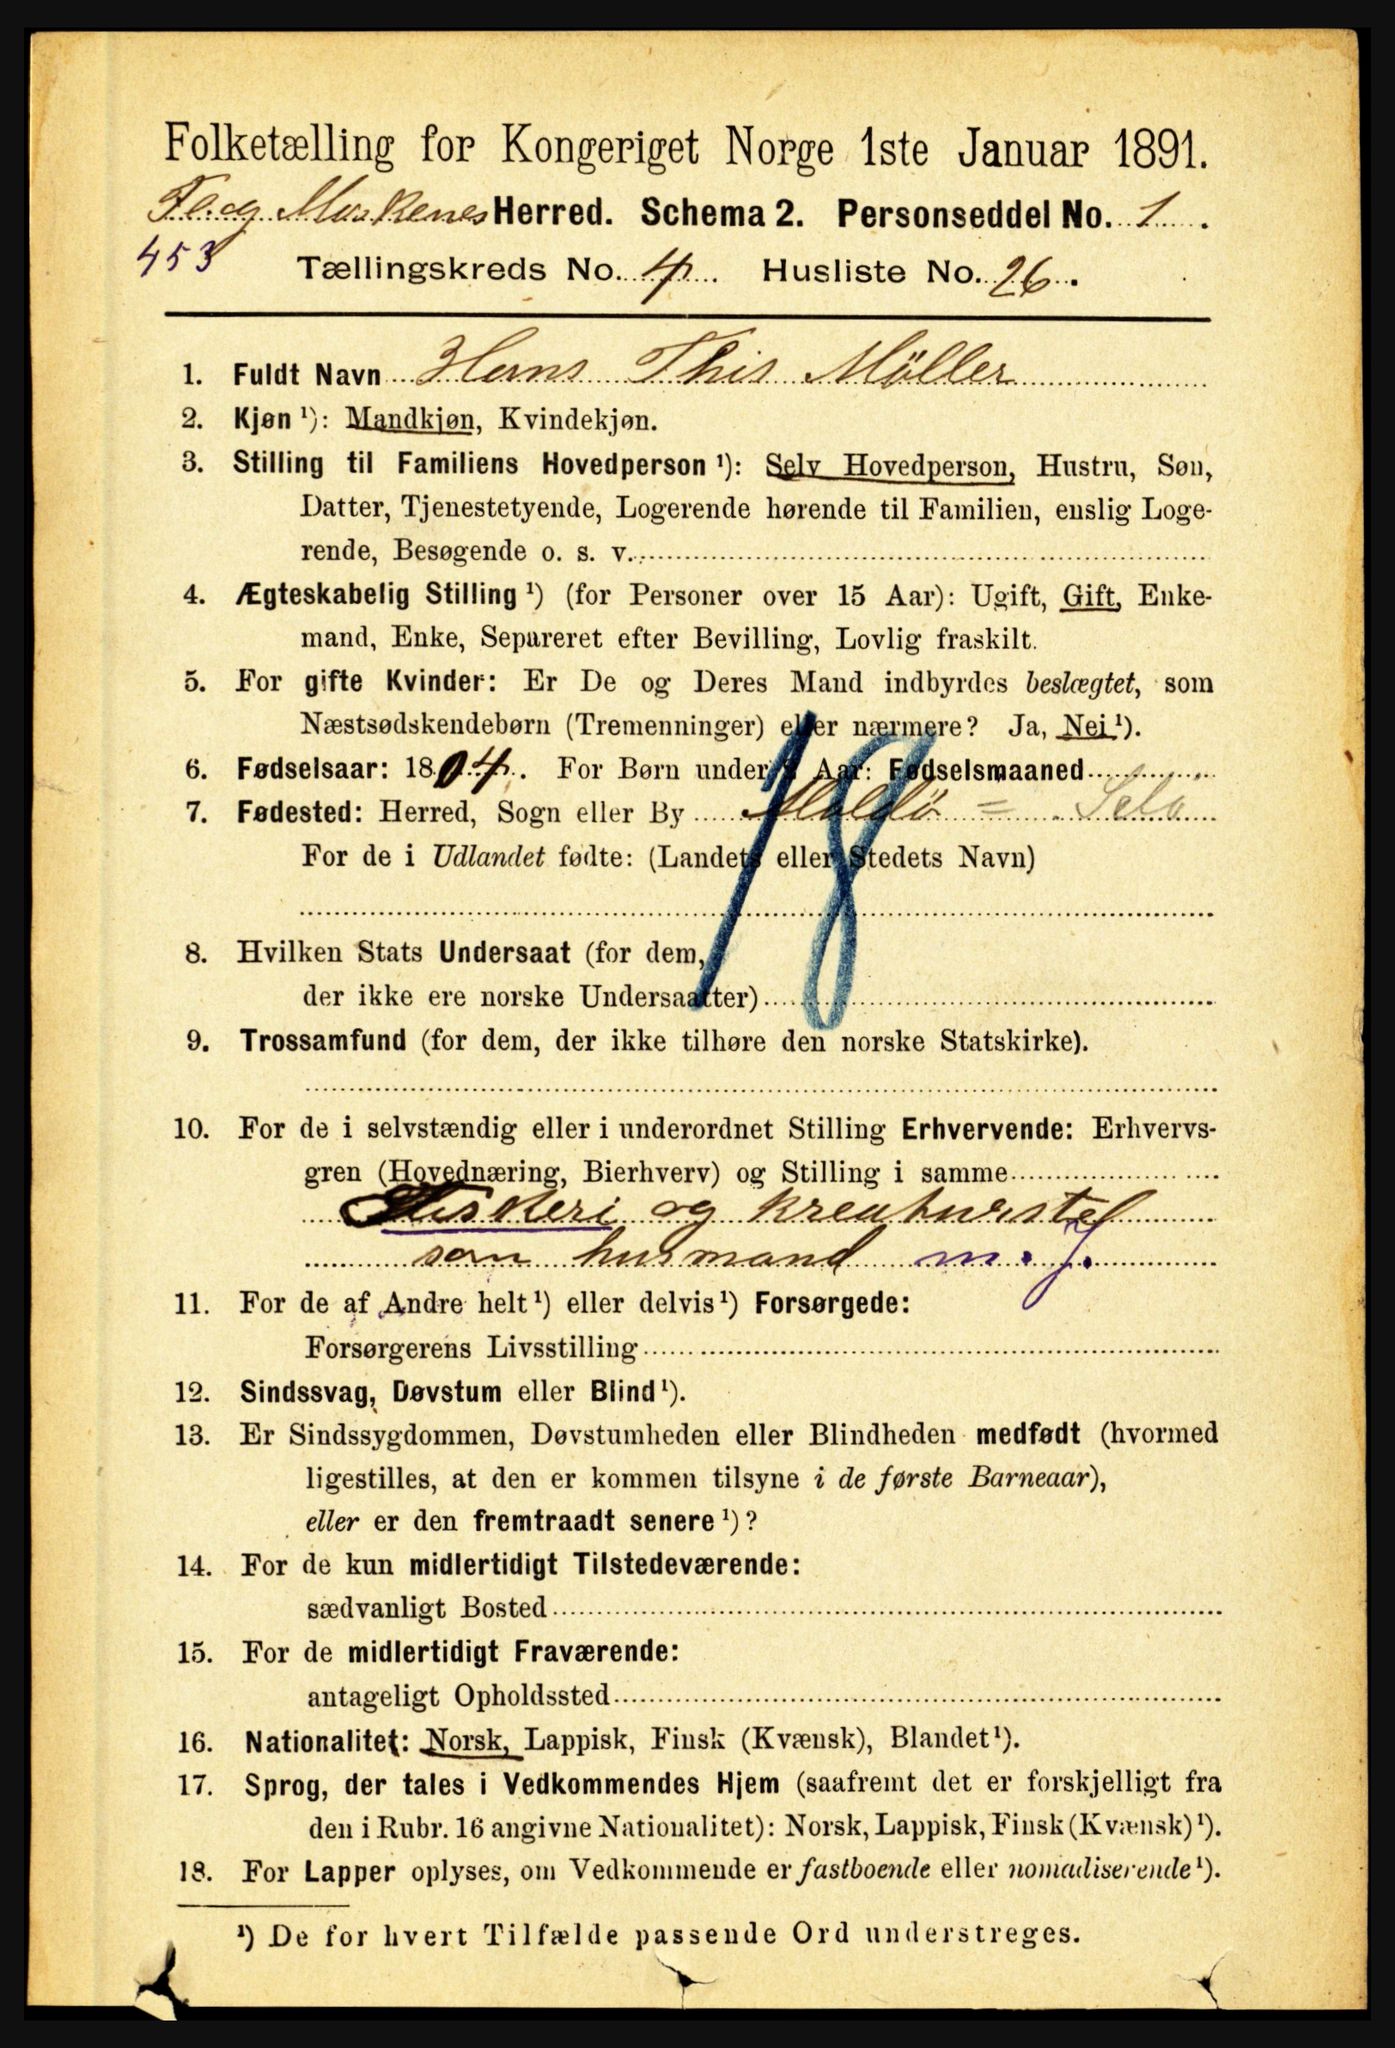 Folketælling for Kongeriget Norge 1ste Januar 1891.
Fl. og Moskenes Herred. Schema 2. Personseddel No. 1.
453 Tællingskreds No. 4. Husliste No. 26.
1. Fuldt Navn Hans This Møller
2. Kjøn ¹): Mandkjøn, Kvindekjøn.
3. Stilling til Familiens Hovedperson ¹): Selv Hovedperson, Hustru, Søn,
Datter, Tjenestetyende, Logerende hørende til Familien, enslig Loge-
rende, Besøgende o. s. v.
4. Ægteskabelig Stilling ¹) (for Personer over 15 Aar): Ugift, Gift, Enke-
mand, Enke, Separeret efter Bevilling, Lovlig fraskilt.
5. For gifte Kvinder: Er De og Deres Mand indbyrdes beslægtet, som
Næstsødskendebørn (Tremenninger) eller nærmere? Ja, Nei ¹).
6. Fødselsaar: 1804. For Børn under 2 Aar: Fødselsmaaned
7. Fødested: Herred, Sogn eller By Moldö = Selö
For de i Udlandet fødte: (Landets eller Stedets Navn)
18
8. Hvilken Stats Undersaat (for dem,
der ikke ere norske Undersaatter)
9. Trossamfund (for dem, der ikke tilhøre den norske Statskirke).
10. For de i selvstændig eller i underordnet Stilling Erhvervende: Erhvervs-
gren (Hovednæring, Bierhverv) og Stilling i samme
Fiskeri og kreaturstel
som husmand m. J.
11. For de af Andre helt ¹) eller delvis ¹) Forsørgede:
Forsørgerens Livsstilling
12. Sindssvag, Døvstum eller Blind ¹).
13. Er Sindssygdommen, Døvstumheden eller Blindheden medfødt (hvormed
ligestilles, at den er kommen tilsyne i de første Barneaar),
eller er den fremtraadt senere ¹)?
14. For de kun midlertidigt Tilstedeværende:
sædvanligt Bosted
15. For de midlertidigt Fraværende:
antageligt Opholdssted
16. Nationalitet: Norsk, Lappisk, Finsk (Kvænsk), Blandet ¹).
17. Sprog, der tales i Vedkommendes Hjem (saafremt det er forskjelligt fra
den i Rubr. 16 angivne Nationalitet): Norsk, Lappisk, Finsk (Kvænsk) ¹).
18. For Lapper oplyses, om Vedkommende er fastboende eller nomadiserende ¹).
¹) De for hvert Tilfælde passende Ord understreges.